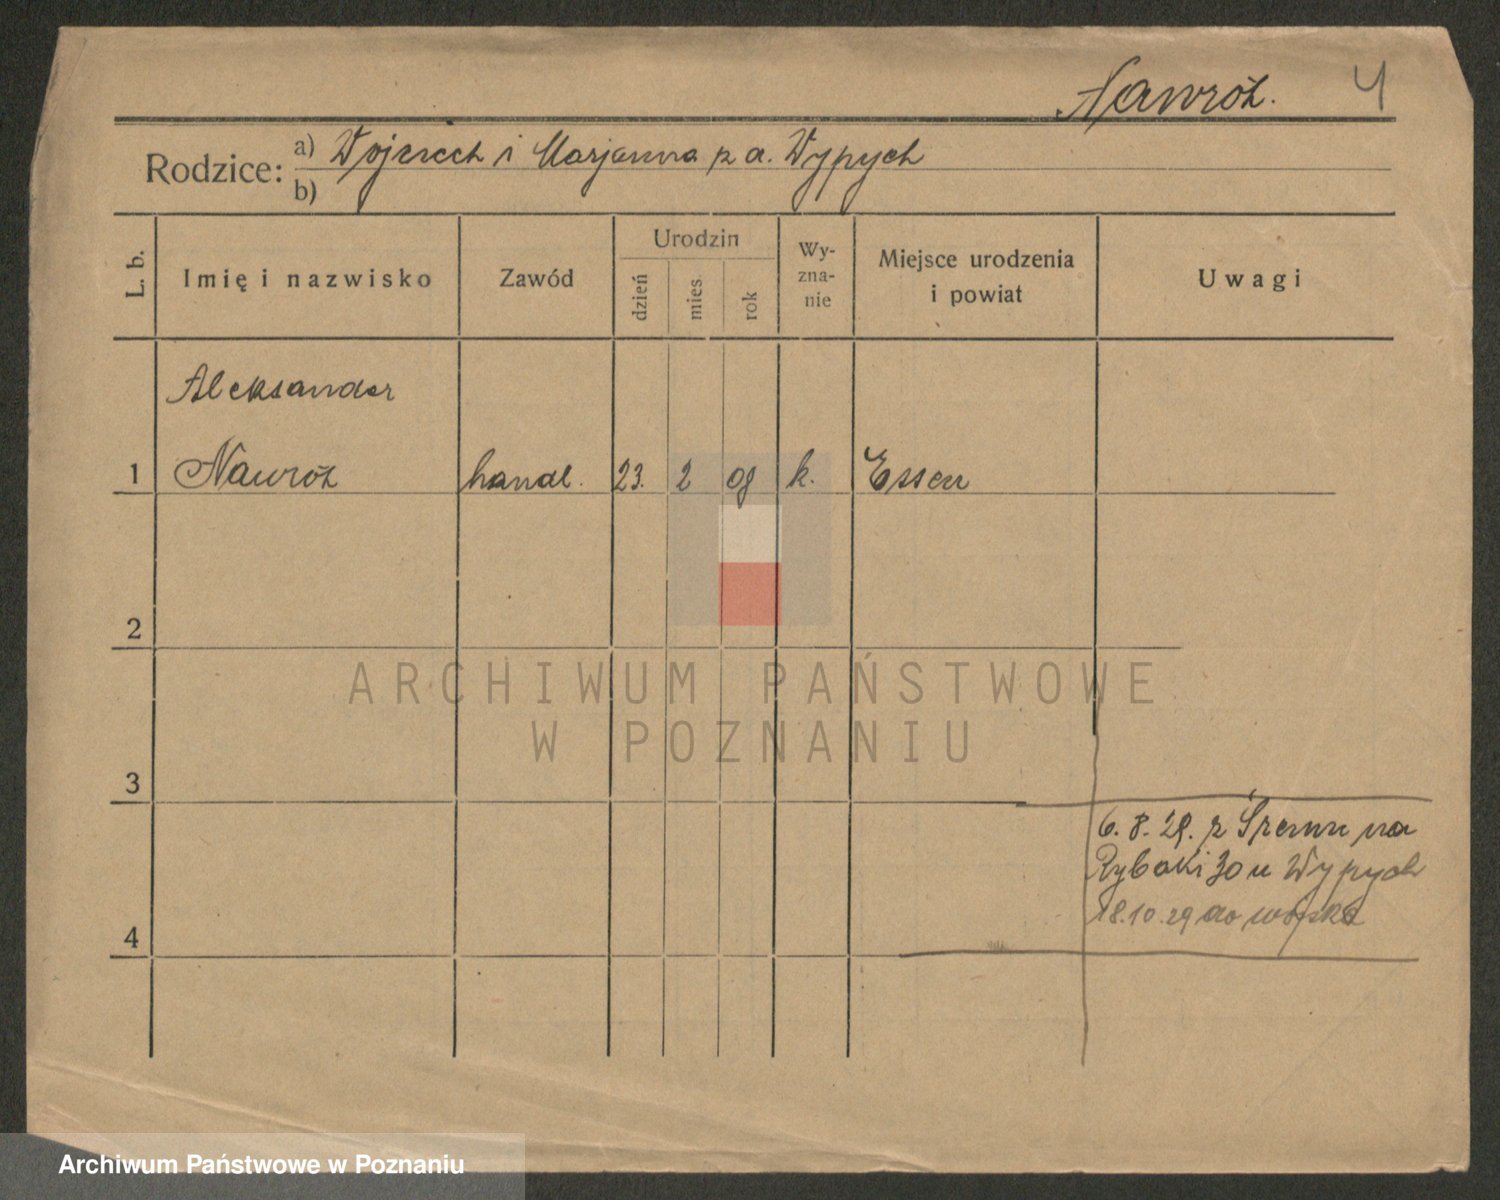 Nawróż. 4
Rodzice: a) Wojciech i Marjanna z d. Wypych
b)
L. b.
Imię i nazwisko
Zawód
Urodzin
dzień
mies.
rok
Wy-
zna-
nie
Miejsce urodzenia
i powiat
Uwagi
Aleksander
1 Nawróż handl. 23. 2 08 k. Essen
2
3
6. 8. 29. z Śremu na
Rybaki 30 u Wypych
4
18.10.29 do wojska
ARCHIWUM PAŃSTWOWE
W POZNANIU
Archiwum Państwowe w Poznaniu